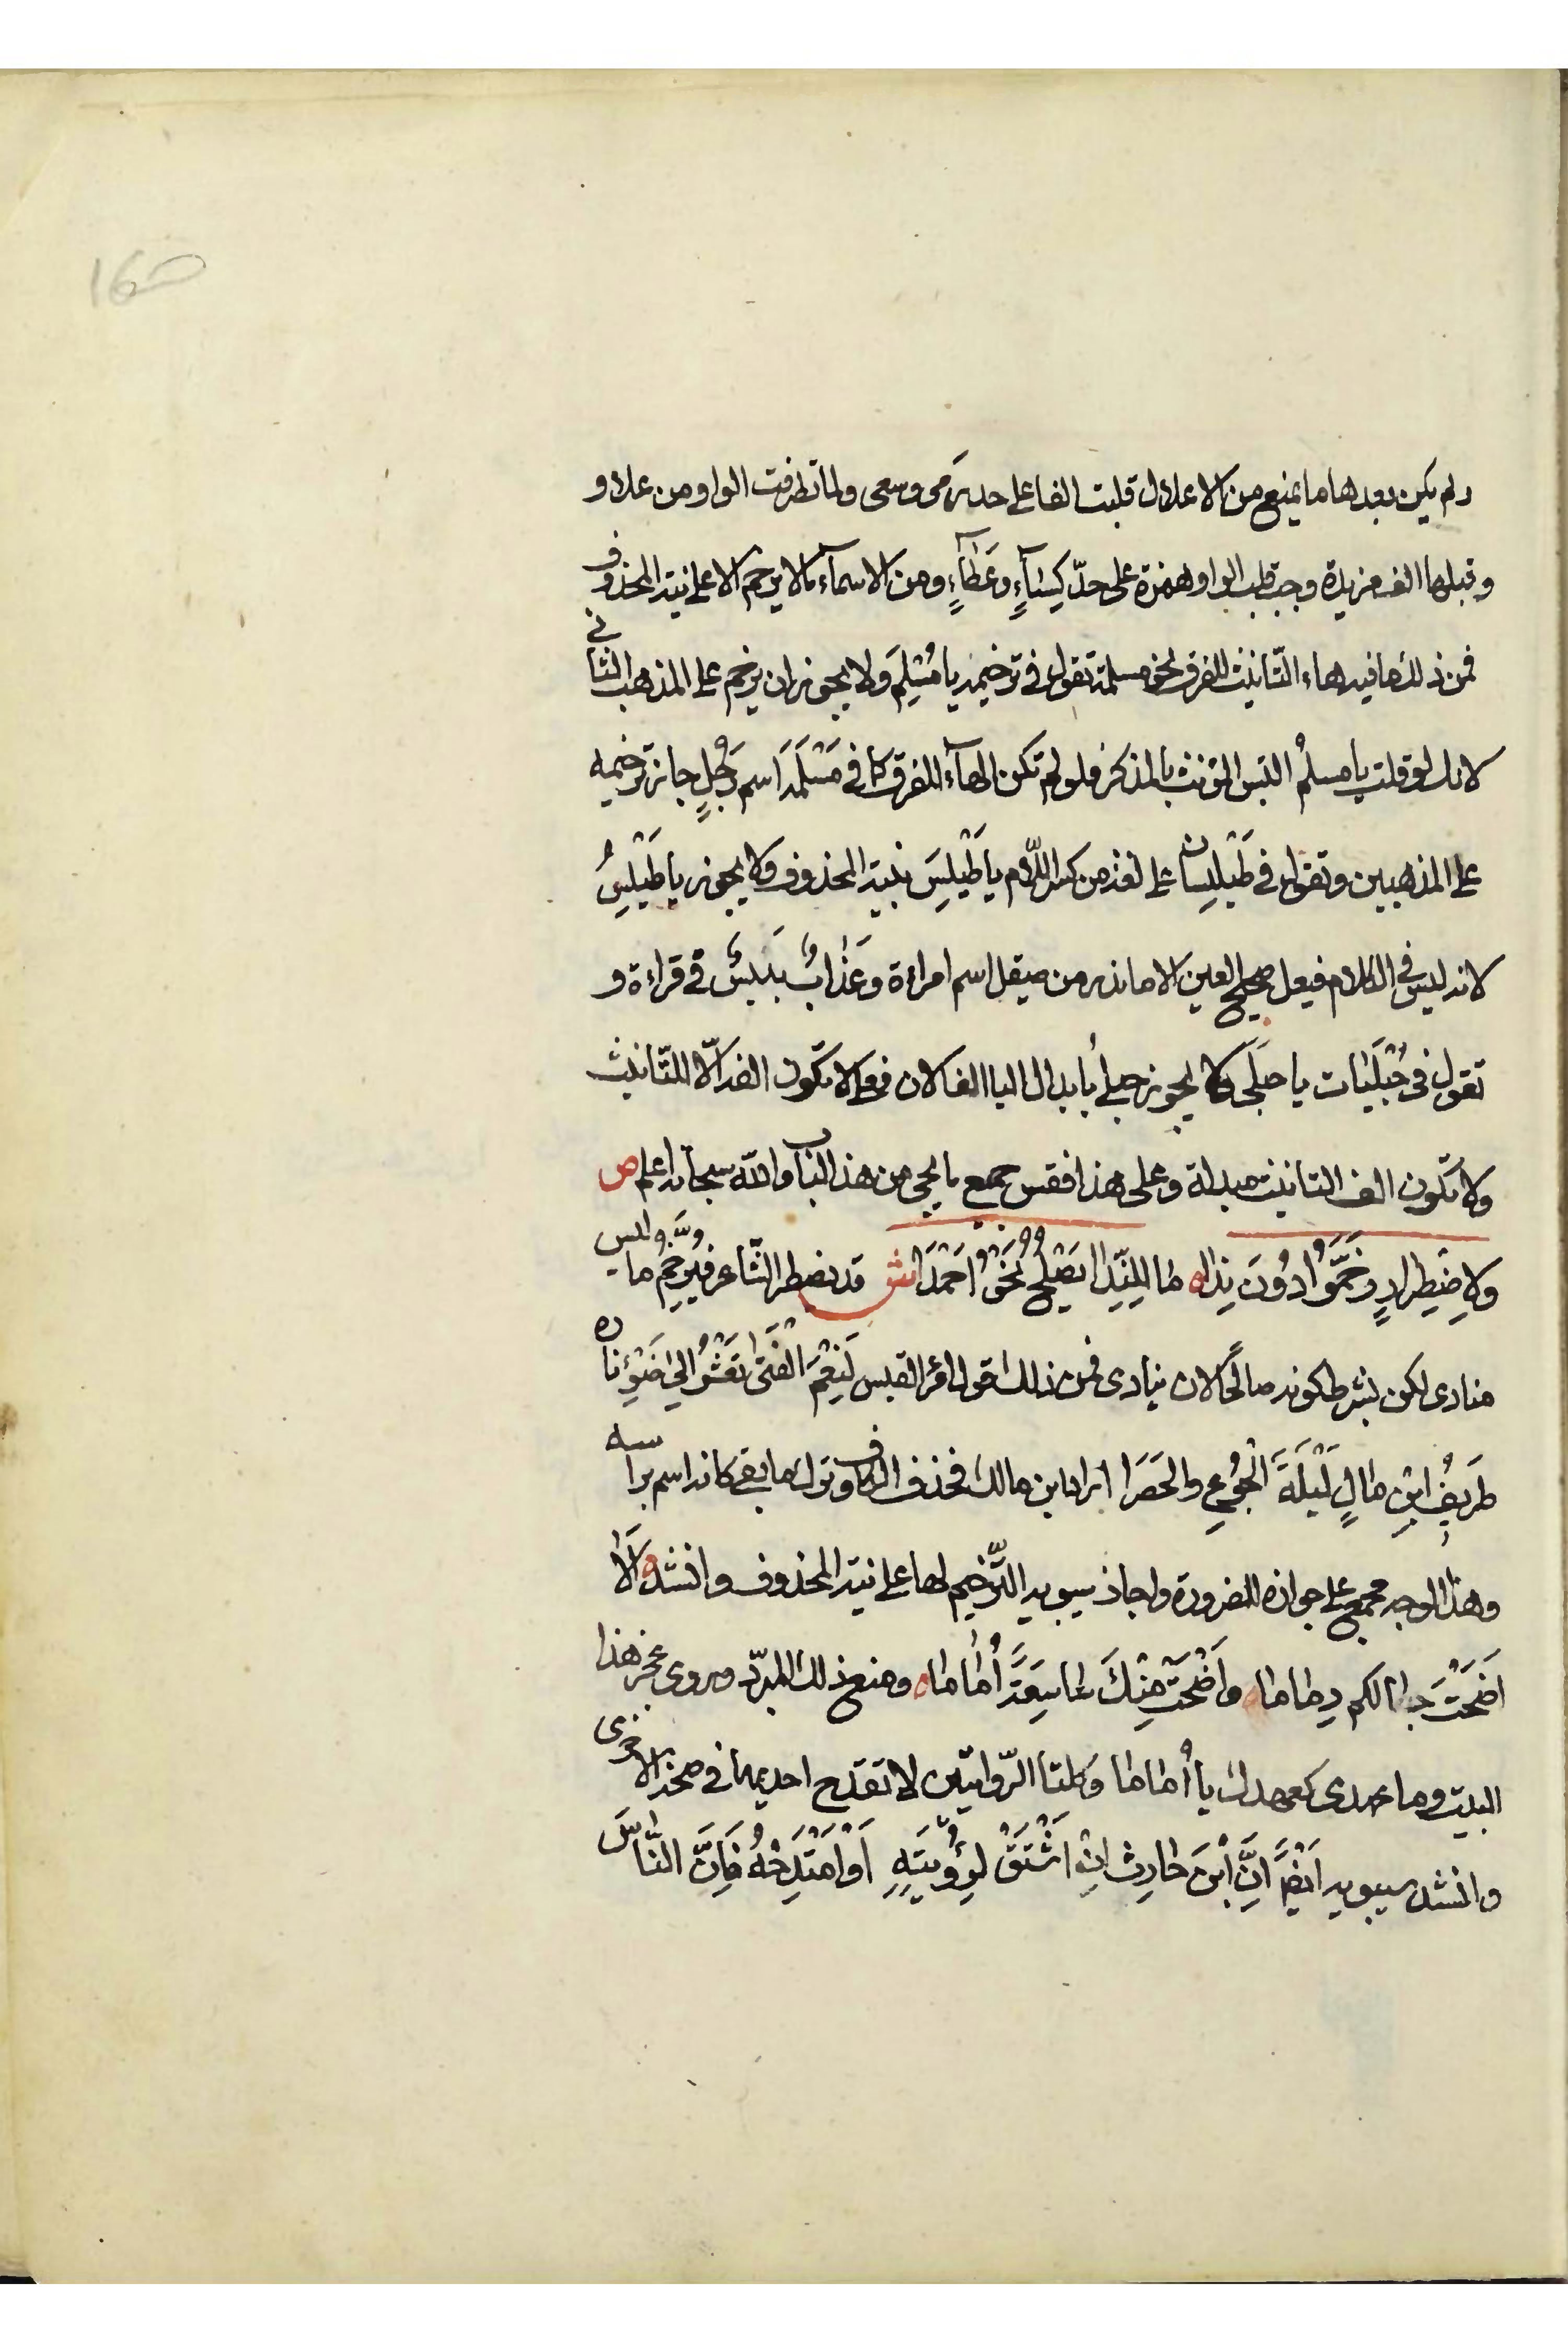 160
ولم يكن بعدها ما يمنع من الاعلال قلبت الفا على حد رَمى وسعى ولما تطرفت الواو من علاو
وقبلها الف مزيدة وجب قلب الواو همزة على حدّ كِسَآءٍ وعَطَآءٍ ومن الاسمآء مالا يرخم الا على نية المحذوف
فمن ذلك ما فيه هاء التّانيث للفرق نحو مسلمة تقول في ترخيمه يا مُسْلِمَ ولا يجوز ان يرخم على المذهب الثاني
لانك لو قلت يا مسلمُ التبس المؤنث بالمذكر فلو لم تكن الهآء للفرق كما في مَسْلَمَة اسم رَجُلٍ جاز ترخيمه
على المذهبين وتقول في طَيْلِسان على لغة من كسر اللّام يا طَيْلِسَ بنية المحذوف ولا يجوز يا طَيْلِسُ
لانه ليس في الكلام فيعل صحيح العين الا ما ندر من صيقل اسم امراءة وعَذَابٍ بَيْئِسٍ في قراءة و
تقول في حُبْلَيَات يا حبلَى ولا يجوز حبلى بابدال اليا الفا لان فعلى لا تكون الفه الّا للتّانيث
ولا تكون الف التانيث مبدلة وعلى هذا فقس جميع ما يجى من هذا الباب والله سبحانه اعلم ص
ولاِضْطِرارٍ رَخَّمُوا دُونَ نِدا ما لِلنِّدا يَصْلُحُ نَحْوُ اَحْمَدَا ش قد يضطر الشّاعر فيرخِّمُ ما وليس
منادى لكن بشرط كونه صالحًا لان ينادى فمن ذلك قول امرء القيس لَنِعْمَ الفَتَى تَعْشُو اِلى ضَوْءِ ناره
طَرِيفُ ابْنِ مالٍ لَيْلَةَ الْجُوعِ والحَصَرا اراد ابن مالك فحذف الكاف وترك ما بقي كانه اسم براسه
وهذا الوجه مجمع على جوازه للضرورة واجاز سيبويه التّرخيم لها على نية المحذوف وانشد اَلَا
اَضْحَتْ حبالكم رِماما واَضْحَتْ مِنْكَ شاسِعَةً أُماما ومنع ذلك المبرّد وروى عجز هذا
البيت وما عهدى كعهدك يا أُماما وكلتا الرّوايتين لا تقدح احديهما في صحة الاخرى
وانشد سيبويه اَيْضًا اِنَّ ابْنَ حارِث اِنْ اَشْتَقْ لِرُؤْيَتِهِ اَوْ اَمْتَدِحْهُ فَاِنَّ النّاسَ